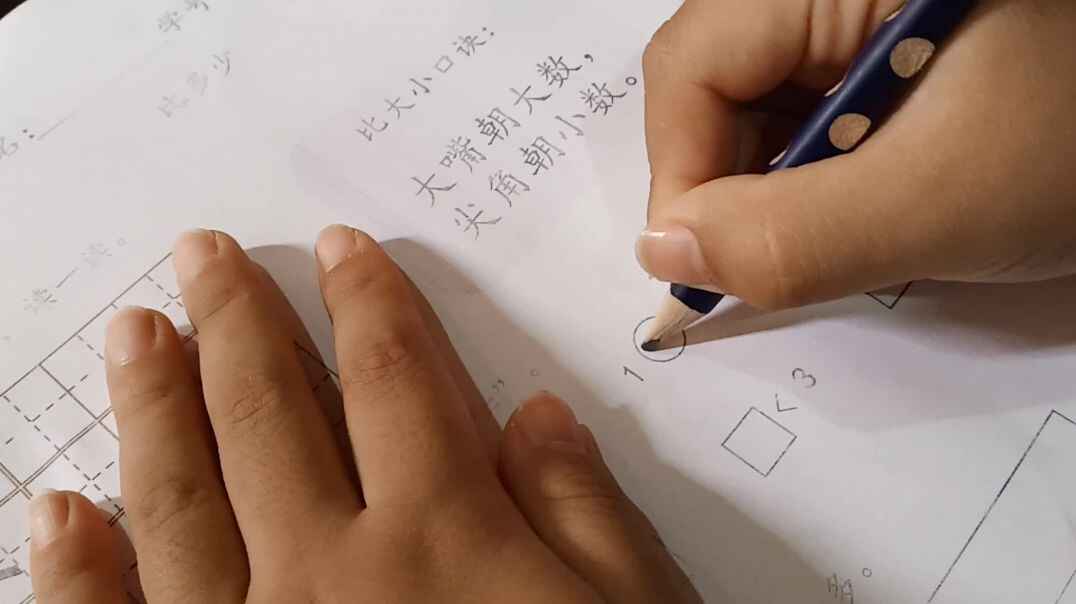 学号
比多少
比大小口诀：
大嘴朝大数，
尖角朝小数。
读一读。
1
<3